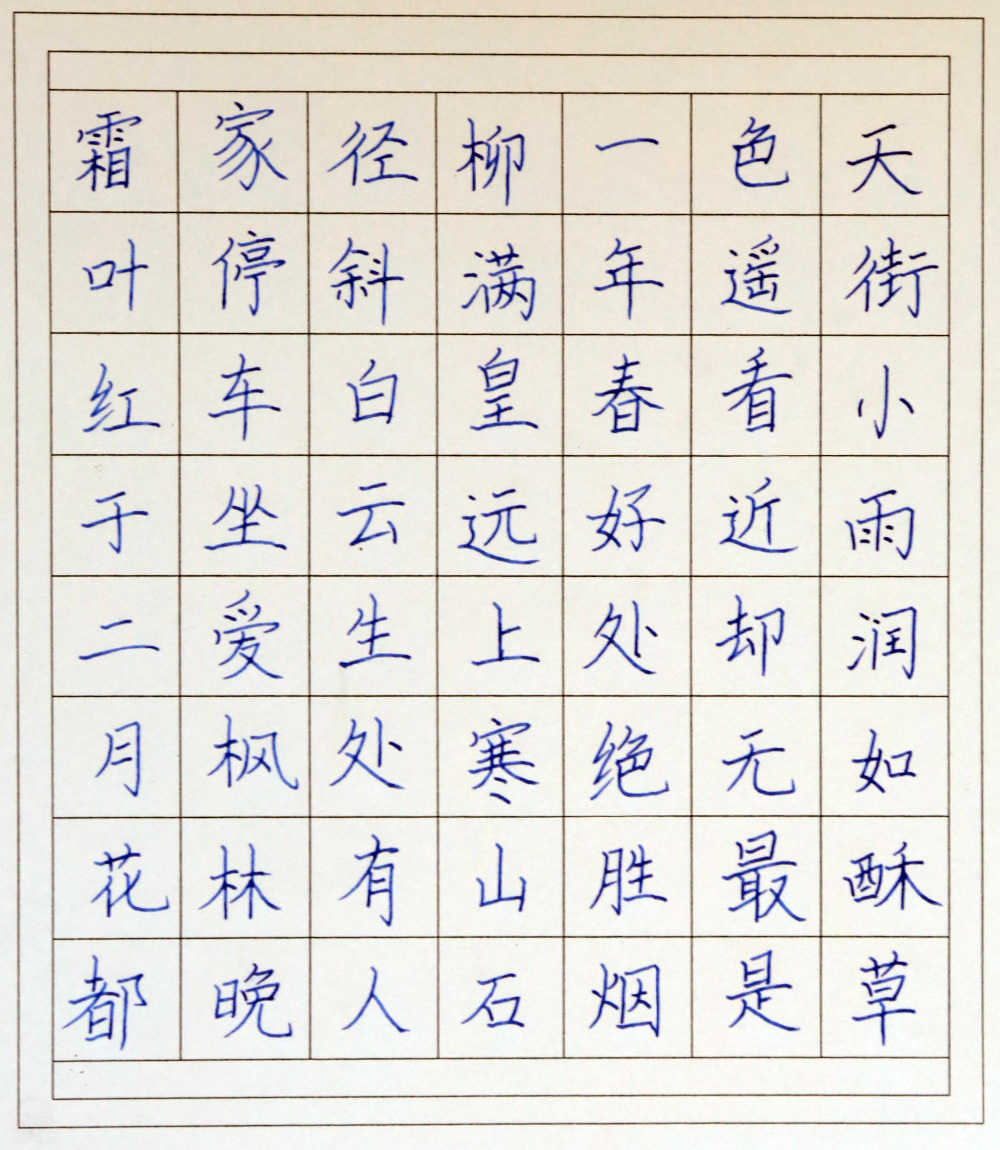 天街小雨润如酥草
色遥看近却无最是
一年春好处绝胜烟
柳满皇远上寒山石
径斜白云生处有人
家停车坐爱枫林晚
霜叶红于二月花都